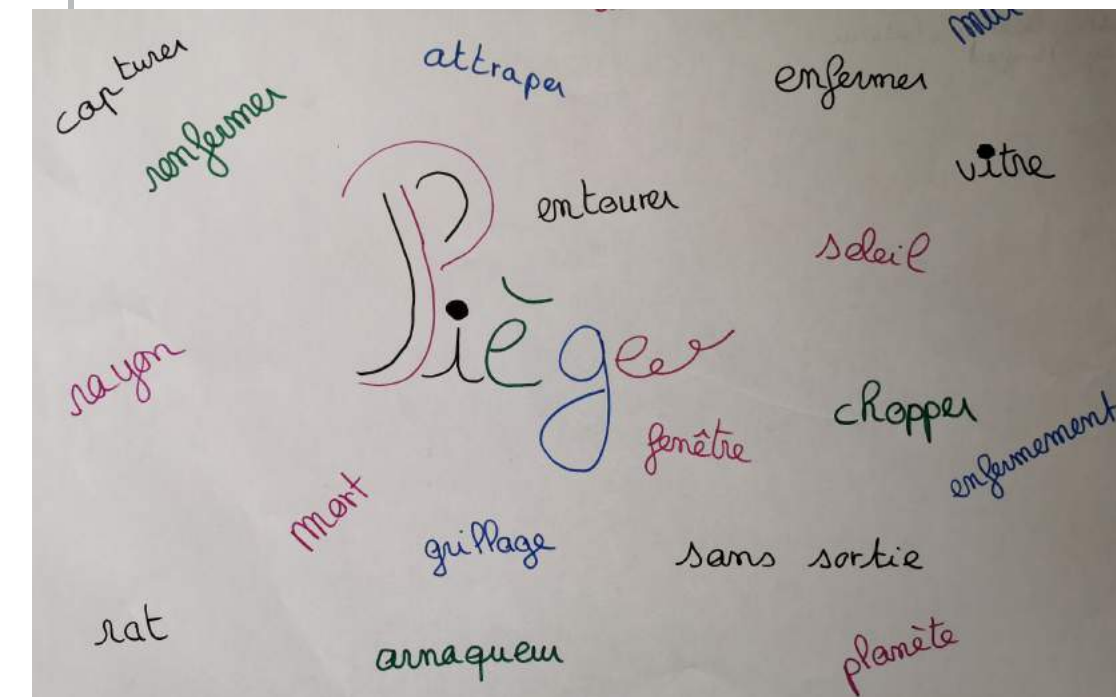 capturer
attraper
enfermer
renfermer
vitre
entourer
soleil
Pièger
rayon
chopper
fenêtre
enfermement
mort
grillage
sans sortie
rat
arnaqueur
planète